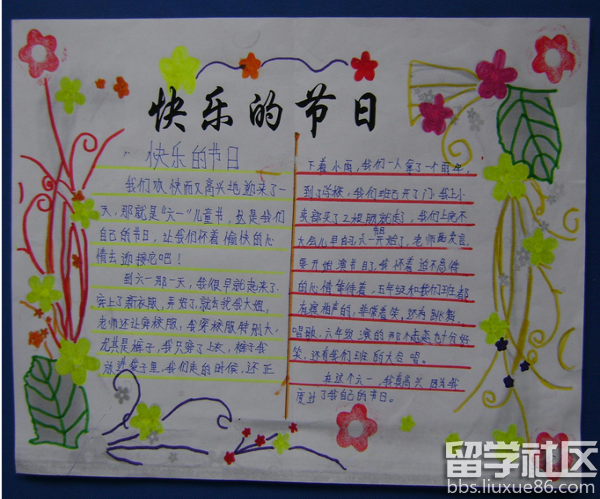 快乐的节日
快乐的节日
我们欢快而又高兴地迎来了一
天，那就是“六一”儿童节，这是我们
自己的节日，让我们怀着愉快的心
情去迎接它吧！
到六一那一天，我很早就起来了
穿上了新衣服，就去我会大姐，
老师还让穿校服，校服特别大，
尤其是裤子，我只穿了上衣，裤子我
放进袋子里，我们走的时候，还正
下着小雨，我们一人拿了一个雨伞，
到了学校，我们班已开了门，我上小
卖部买了就走了，我们上完不
大会儿早自六一开始了，老师发言，
要开始演节目了，我怀着迫不急待
的心情等待着，五年级和我们班都
有演的，非常好笑，还有别跳舞
唱歌，六年级演的那个十分好
笑，还有我们班的大合唱。
在这个六一，我真高兴因为我
度过了我自己的节日。
留学社区
bbs.liuxue86.com